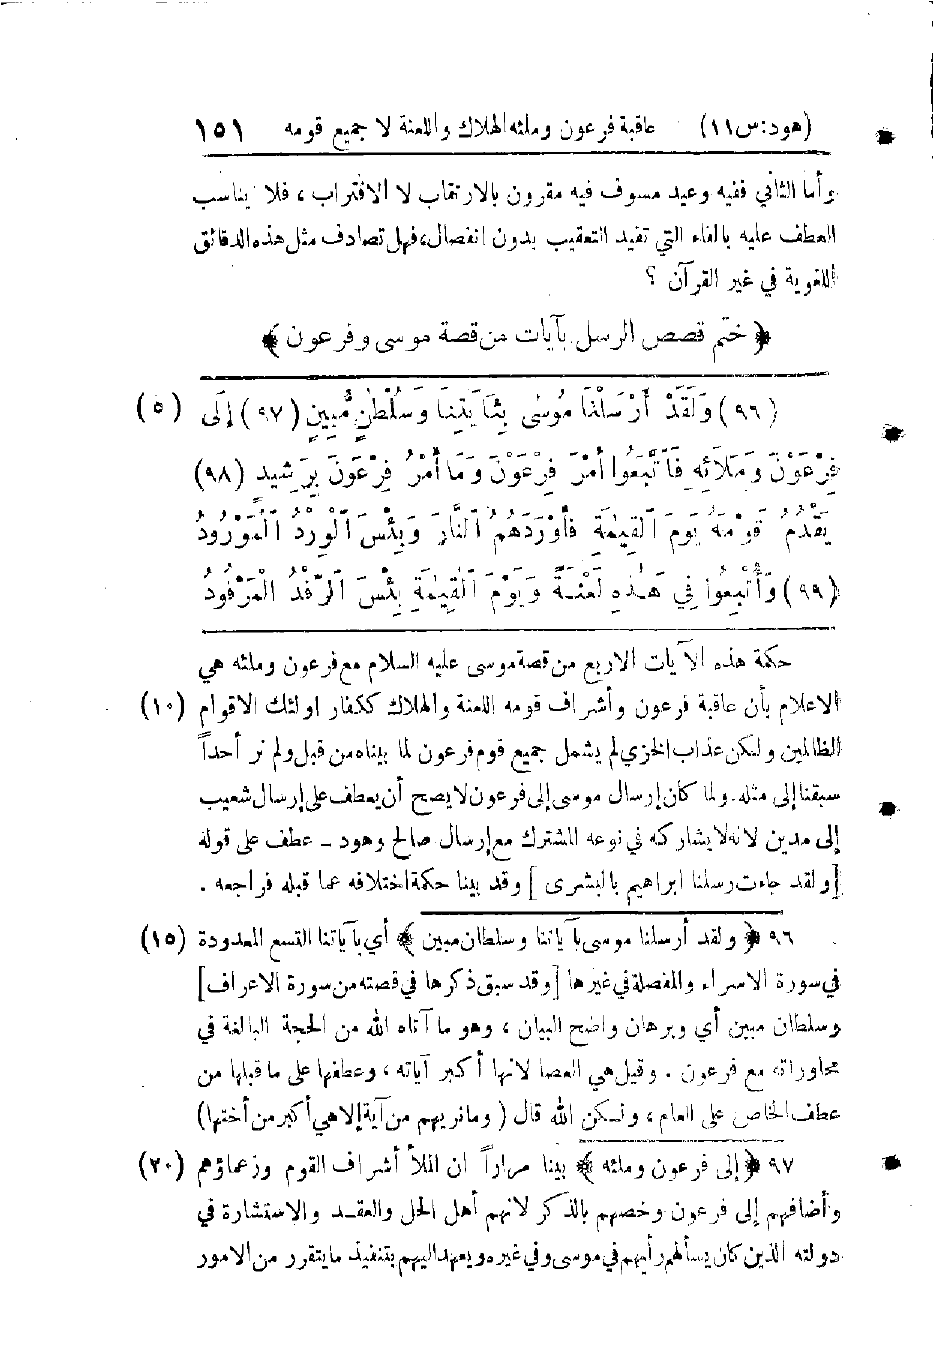 (هود:س١١) عاقبة فرعون وملئه الهلاك واللعنة لا جميع قومه ١٥١
وأما الثاني ففيه وعيد مسوف فيه مقرون بالارتقاب لا الاقتراب ، فلا يناسب
العطف عليه بالفاء التي تفيد التعقيب بدون انفصال، فهل تصادف مثل هذه الدقائق
اللغوية في غير القرآن ؟
﴿ ختم قصص الرسل بآيات من قصة موسى وفرعون ﴾
(٩٦) وَلَقَدْ أَرْسَلْنَا مُوسَى بِـَٔايَـٰتِنَا وَسُلْطَـٰنٍ مُّبِينٍ (٩٧) إِلَى (٥)
فِرْعَوْنَ وَمَلَائِهِ فَاَتَّبَعُوا أَمْرَ فِرْعَوْنَ وَمَا أَمْرُ فِرْعَوْنَ بِرَشِيدٍ (٩٨)
يَقْدُمُ قَوْمَهُ يَوْمَ ٱلْقِيَـٰمَةِ فَأَوْرَدَهُمُ ٱلنَّارَ وَبِئْسَ ٱلْوِرْدُ ٱلْمَوْرُودُ
(٩٩) وَأُتْبِعُوا فِي هَـٰذِهِ لَعْنَةً وَيَوْمَ ٱلْقِيَـٰمَةِ بِئْسَ ٱلرِّفْدُ الْمَرْفُودُ
حكمة هذه الآيات الاربع من قصة موسى عليه السلام مع فرعون وملئه هي
الاعلام بأن عاقبة فرعون وأشراف قومه اللعنة والهلاك ككفار اولئك الاقوام (١٠)
الظالمين ولكن عذاب الخزي لم يشمل جميع قوم فرعون لما بيناه من قبل ولم نر أحداً
سبقنا إلى مثله. ولما كان إرسال موسى إلى فرعون لا يصح أن يعطف على إرسال شعيب
إلى مدين لانه لا يشاركه في نوعه المشترك مع إرسال صالح وهود - عطف على قوله
[ولقد جاءت رسلنا ابراهيم بالبشرى] وقد بينا حكمة اختلافه عما قبله فراجعه .
٩٦ ﴿ ولقد أرسلنا موسى بآياتنا وسلطان مبين ﴾ أي بآياتنا التسع المعدودة (١٥)
في سورة الاسراء والمفصلة في غيرها [وقد سبق ذكرها في قصته من سورة الاعراف]
وسلطان مبين أي وبرهان واضح البيان ، وهو ما آتاه الله من الحجة البالغة في
محاوراته مع فرعون . وقيل هي العصا لانها أكبر آياته ، وعطفها على ما قبلها من
عطف الخاص على العام ، ولكن الله قال ( وما نريهم من آية إلا هي أكبر من أختها)
٩٧ ﴿إلى فرعون وملئه ﴾ بينا مراراً ان الملأ أشراف القوم وزعماؤهم (٢٠)
وأضافهم إلى فرعون وخصهم بالذكر لانهم أهل الحل والعقد والاستشارة في
دولته الذين كان يسألهم رأيهم في موسى وفي غيره ويعهد اليهم بتنفيذ ما يتقرر من الامور